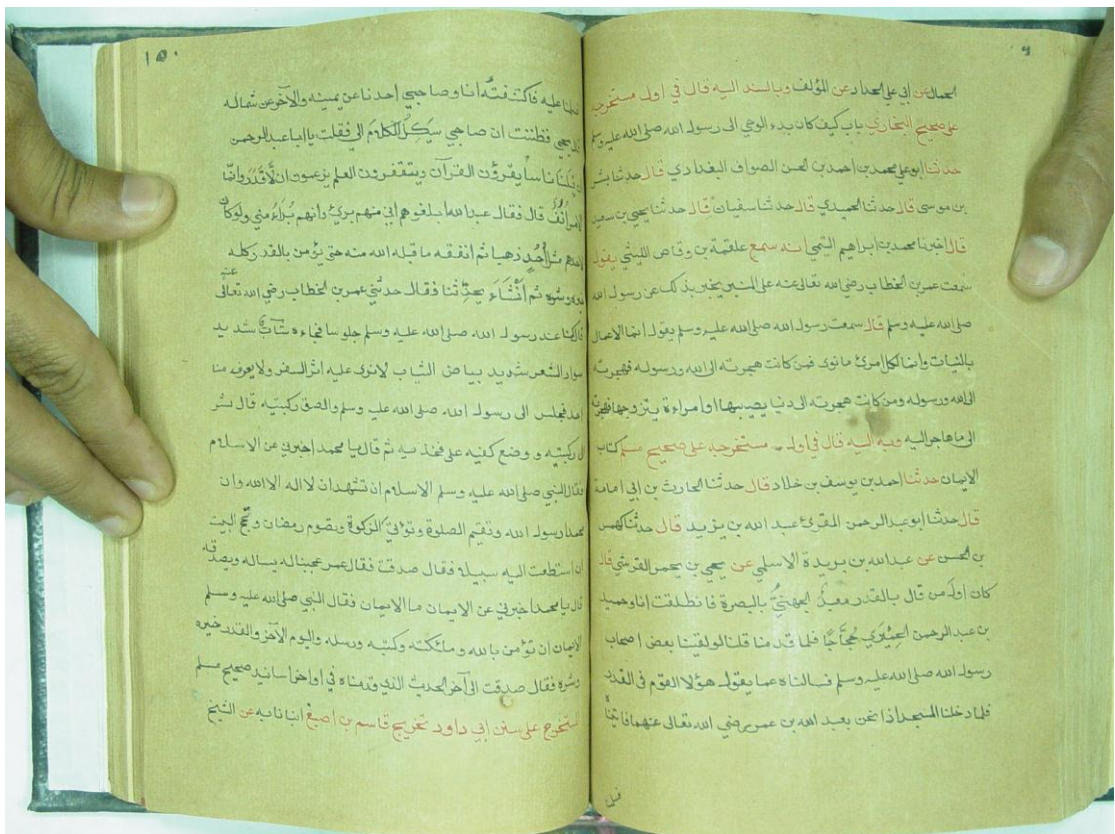 الجمال عن ابي علي الحداد عن المؤلف وبالسند اليه قال في اول مستخرجه
على صحيح البخاري باب كيف كان بدء الوحي الى رسول الله صلى الله عليه وسلم
حدثنا ابو علي محمد بن احمد بن الحسن الصواف البغدادي قال حدثنا بشر
بن موسى قال حدثنا الحميدي قال حدثنا سفيان قال حدثنا يحيى بن سعيد
قال اخبرنا محمد بن ابراهيم التيمي انه سمع علقمة بن وقاص الليثي يقول
سمعت عمر بن الخطاب رضي الله تعالى عنه على المنبر يخبر بذلك عن رسول الله
صلى الله عليه وسلم قال سمعت رسول الله صلى الله عليه وسلم يقول انما الاعمال
بالنيات وانما لكل امرئ ما نوى فمن كانت هجرته الى الله ورسوله فهجرته
الى الله ورسوله ومن كانت هجرته الى دنيا يصيبها او امراءة يتزوجها فهجرته
الى ما هاجر اليه وبه اليه قال في اول مستخرجه على صحيح مسلم كتاب
الايمان حدثنا احمد بن يوسف بن خلاد قال حدثنا الحارث بن ابي امامة
قال حدثنا ابو عبد الرحمن المقرئ عبد الله بن يزيد قال حدثنا كهمس
بن الحسن عن عبد الله بن بريدة الاسلمي عن يحيى بن يحمر القرشي قال
كان اول من قال بالقدر معبد الجهني بالبصرة فانطلقت انا وحميد
بن عبد الرحمن الحميري حجاجا فلما قدمنا قلنا لو لقينا بعض اصحاب
رسول الله صلى الله عليه وسلم فسالناه عما يقول هؤلا القوم في القدر
فلما دخلنا المسجد اذا نحن بعبد الله بن عمر رضي الله تعالى عنهما
١٥٠
عليه فاكتنفته انا وصاحبي احدنا عن يمينه والاخر عن شماله
يحيى فظننت ان صاحبي سيكل الكلام الي فقلت يا ابا عبد الرحمن
ان قبلنا ناسا يقرؤن القرآن ويتقفرون العلم يزعمون ان لا قدر وانما
الامر انف قال فقال عبد الله ابلغوهم اني منهم برئ وانهم برآء مني ولو كان
لاحدهم مثل احد ذهبا ثم انفقه ما قبله الله منه حتى يؤمن بالقدر كله
خيره وشره ثم انشاء يحدثنا فقال حدثني عمر بن الخطاب رضي الله تعالى عنه
قال كنا عند رسول الله صلى الله عليه وسلم جلوسا فجاءه شاب شديد
سواد الشعر شديد بياض الثياب لا نرى عليه اثر السفر ولا يعرفه منا
احد فجلس الى رسول الله صلى الله عليه وسلم والصق ركبتيه قال بشر
الى ركبتيه ووضع كفيه على فخذيه ثم قال يا محمد اخبرني عن الاسلام
فقال النبي صلى الله عليه وسلم الاسلام ان تشهد ان لا اله الا الله وان
محمدا رسول الله وتقيم الصلوة وتؤتي الزكوة وتصوم رمضان وتحج البيت
ان استطعت اليه سبيلا فقال صدقت فقال عمر عجبنا له يساله ويصدقه
قال يا محمد اخبرني عن الايمان ما الايمان فقال النبي صلى الله عليه وسلم
الايمان ان تؤمن بالله وملئكته وكتبه ورسله واليوم الآخر والقدر خيره
وشره فقال صدقت الى آخر الحديث الذي قدمناه في اواخر اسانيد صحيح مسلم
المستخرج على سنن ابي داود تخريج قاسم بن اصبغ انبانا به عن الشيخ